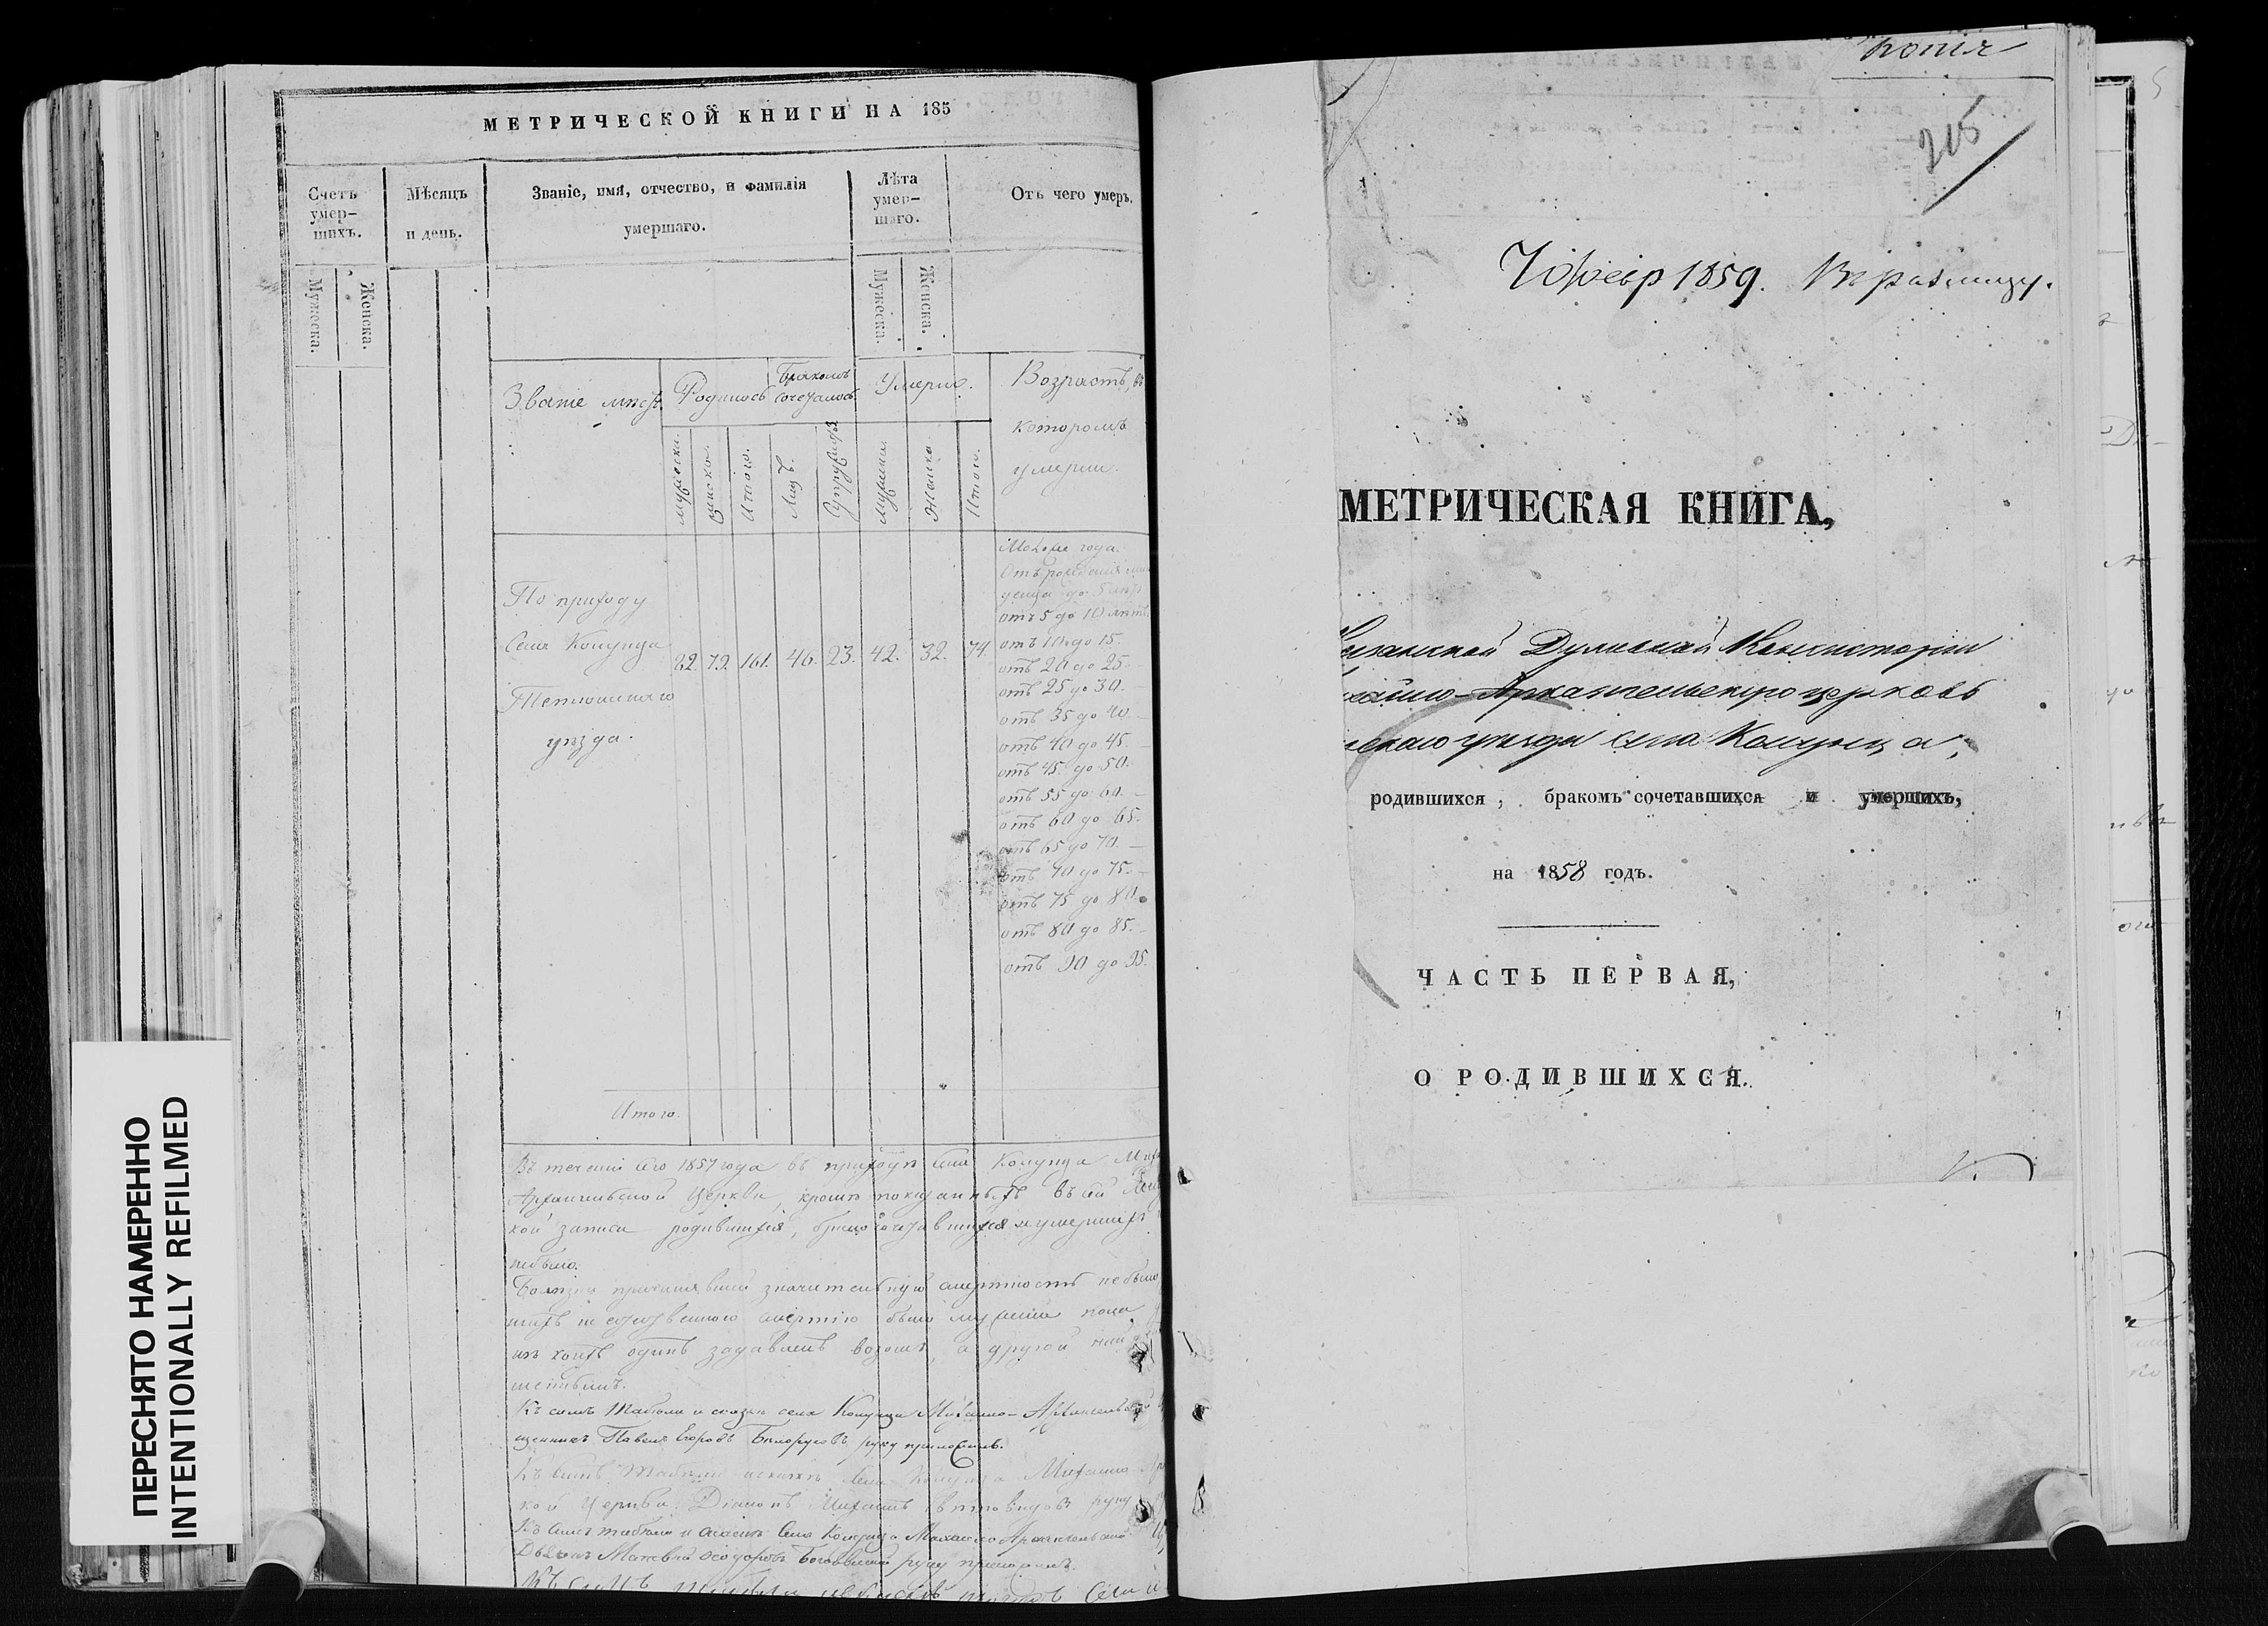 МЕТРИЧЕСКОЙ КНИГИ НА 185
Счетъ умер-шихъ.
Мѣсяцъ и день.
Званіе, имя, отчество, и фамилія умершаго.
Лѣта умер-шаго.
Отъ чего умеръ.
Мужеска.
Женска.
Мужеска.
Женска.
Званіе мѣстъ
Родилось
Бракомъ сочеталось
Умерло.
Возрастъ, въ
которомъ
умерли.
мужеска.
женска.
Итого.
Лицъ.
Супружествъ
мужеска.
Женска
Итого.
По приходу
Села Колунца
Тетюшскаго
уѣзда.
82. 79. 161. 46. 23. 42. 32. 74.
Моложе года.
Отъ рожденія
до 5 лѣтъ
отъ 5 до 10 лѣтъ
отъ 10 до 15.
отъ 20 до 25.
отъ 25 до 30.
отъ 35 до 40
отъ 40 до 45.
отъ 45 до 50.
отъ 55 до 60.
отъ 60 до 65.
отъ 65 до 70.
отъ 70 до 75.
отъ 75 до 80.
отъ 80 до 85.
отъ 90 до 95.
Итого.
Въ теченіи сего 1857 года въ приходѣ села Колунца Мих
Архангельской Церкви, кромѣ показанныхъ въ сей
кой записи родившихся, бракосочетавшихся и умершихъ
небыло.
Болѣзни причинявшей значительную смертность небыло
смертію было
изъ коихъ одинъ задавленъ возомъ, а другой
Къ симъ табели и сказкѣ села Колунца Михаило-Архангельской
щенникъ Павелъ Егоровъ Бѣлоруковъ руку приложилъ.
Къ симъ табели и сказкѣ села Колунца Михаило-Ар
кой церкви Діаконъ Михаилъ руку
Къ симъ табели и сказкѣ Села Колунца Михаило Архангельской
Дьячокъ Матвей Ѳеодоровъ руку приложилъ
Къ симъ
копія
205
1859. Въ разницу.
МЕТРИЧЕСКАЯ КНИГА,
Духовной Консисторіи
Архангельскую церковь
уѣзда села Колунца,
родившихся, бракомъ сочетавшихся и умершихъ,
на 1858 годъ.
ЧАСТЬ ПЕРВАЯ,
О РОДИВШИХСЯ.
ПЕРЕСНЯТО НАМЕРЕННО
INTENTIONALLY REFILMED